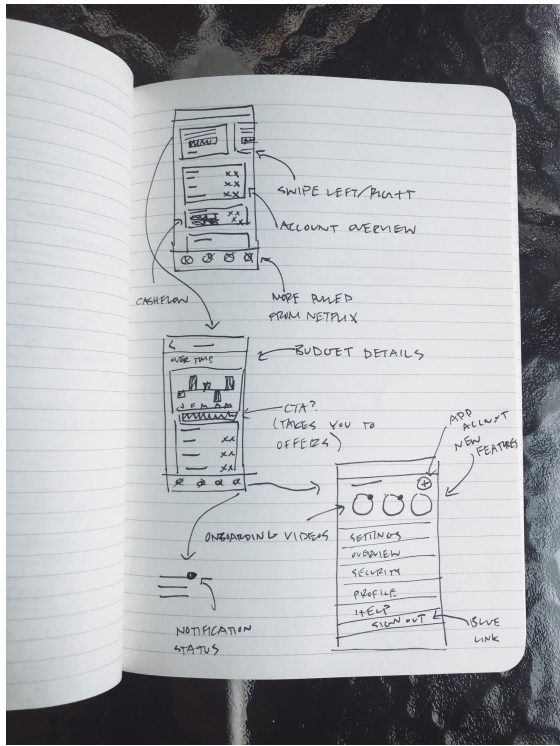 SWIPE LEFT/RIGHT
XX
XX
XX
ACCOUNT OVERVIEW
XX
XX
CASHFLOW
MORE PULLED
FROM NETFLIX
OVER TIME
BUDGET DETAILS
J F M A M
CTA?
(TAKES YOU TO
OFFERS)
XX
XX
XX
NEW
FEATURES
+
ONBOARDING VIDEOS
SETTINGS
OVERVIEW
SECURITY
PROFILE
HELP
SIGN OUT
BLUE
LINK
NOTIFICATION
STATUS